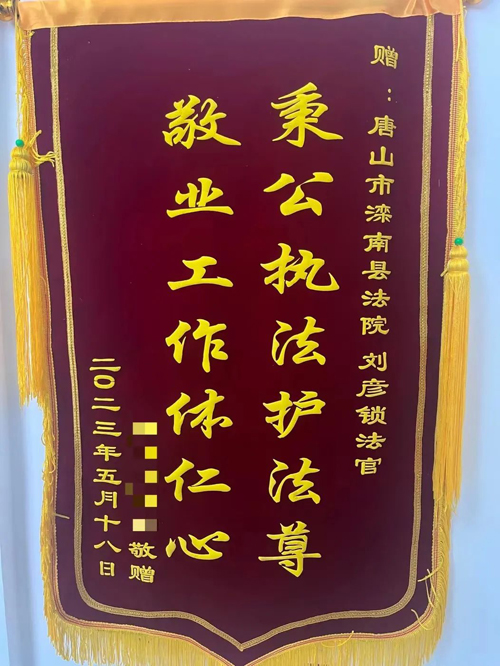 赠：唐山市滦南县法院 刘彦锁法官
秉公执法护法尊
敬业工作体仁心
敬赠
二〇二三年五月十八日